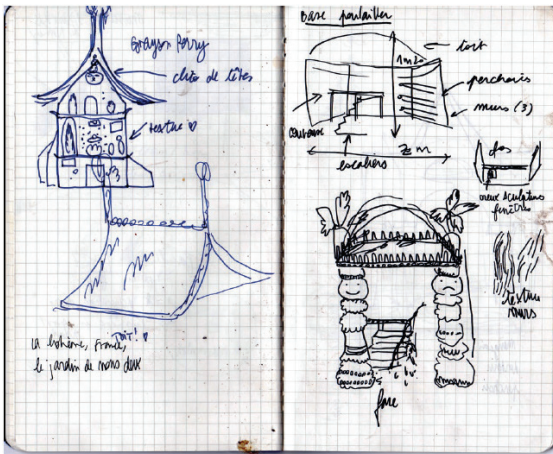 Grayson Perry
clito de têtes
textile
TOIT !
la bohème, France,
le jardin de nous deux
Base poulailler
toit
1m20
perchoirs
murs (3)
escaliers
2 m
dos
creux sculptures
fenêtres
texture
murs
face